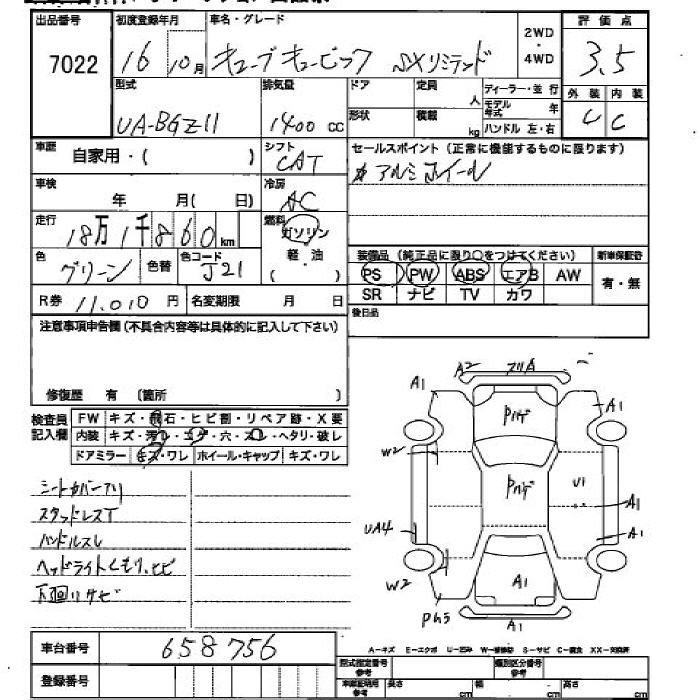 出品番号 初度登録年月 車名・グレード 2WD・4WD 評価点
7022 16 10月 キューブキュービック SXリミテッド 3.5
型式 排気量 ドア 定員 人 ディーラー・並行 外装 内装
UA-BGZ11 1400 cc 形状 積載 kg モデル年式 年 C C
ハンドル 左・右
車歴 自家用・( ) シフト CAT セールスポイント(正常に機能するものに限ります)
アルミホイール
車検 年 月( 日) 冷房 AC
走行 18万1千860km 燃料 ガソリン
軽・油
( )
色 グリーン 色替 色コード J21
装備品(純正品に限り○をつけてください) 新車保証書
PS PW ABS エアB AW 有・無
SR ナビ TV カワ
R券 11,010円 名変期限 月 日
後日品
注意事項申告欄(不具合内容等は具体的に記入して下さい)
修復歴 有 (箇所 )
検査員記入欄 FW キズ・飛石・ヒビ割・リペア跡・X要
内装 キズ・汚レ・コゲ・穴・スレ・ヘタリ・破レ
ドアミラー キズ・ワレ ホイール・キャップ キズ・ワレ
シートカバーアリ
スタッドレスT
ハンドルスレ
ヘッドライトくもり、ヒビ
下回りサビ
A2 A1 A1
Pハゲ
W2
Pハゲ U1
A1
UA4 A1
W2 A1
A1
車台番号 658756
登録番号
A-キズ E-エクボ U-凹み W-補修跡 S-サビ C-腐食 XX-交換済
型式指定番号 参考 類別区分番号 参考
車庫証明用 参考 長さ cm 幅 cm 高さ cm